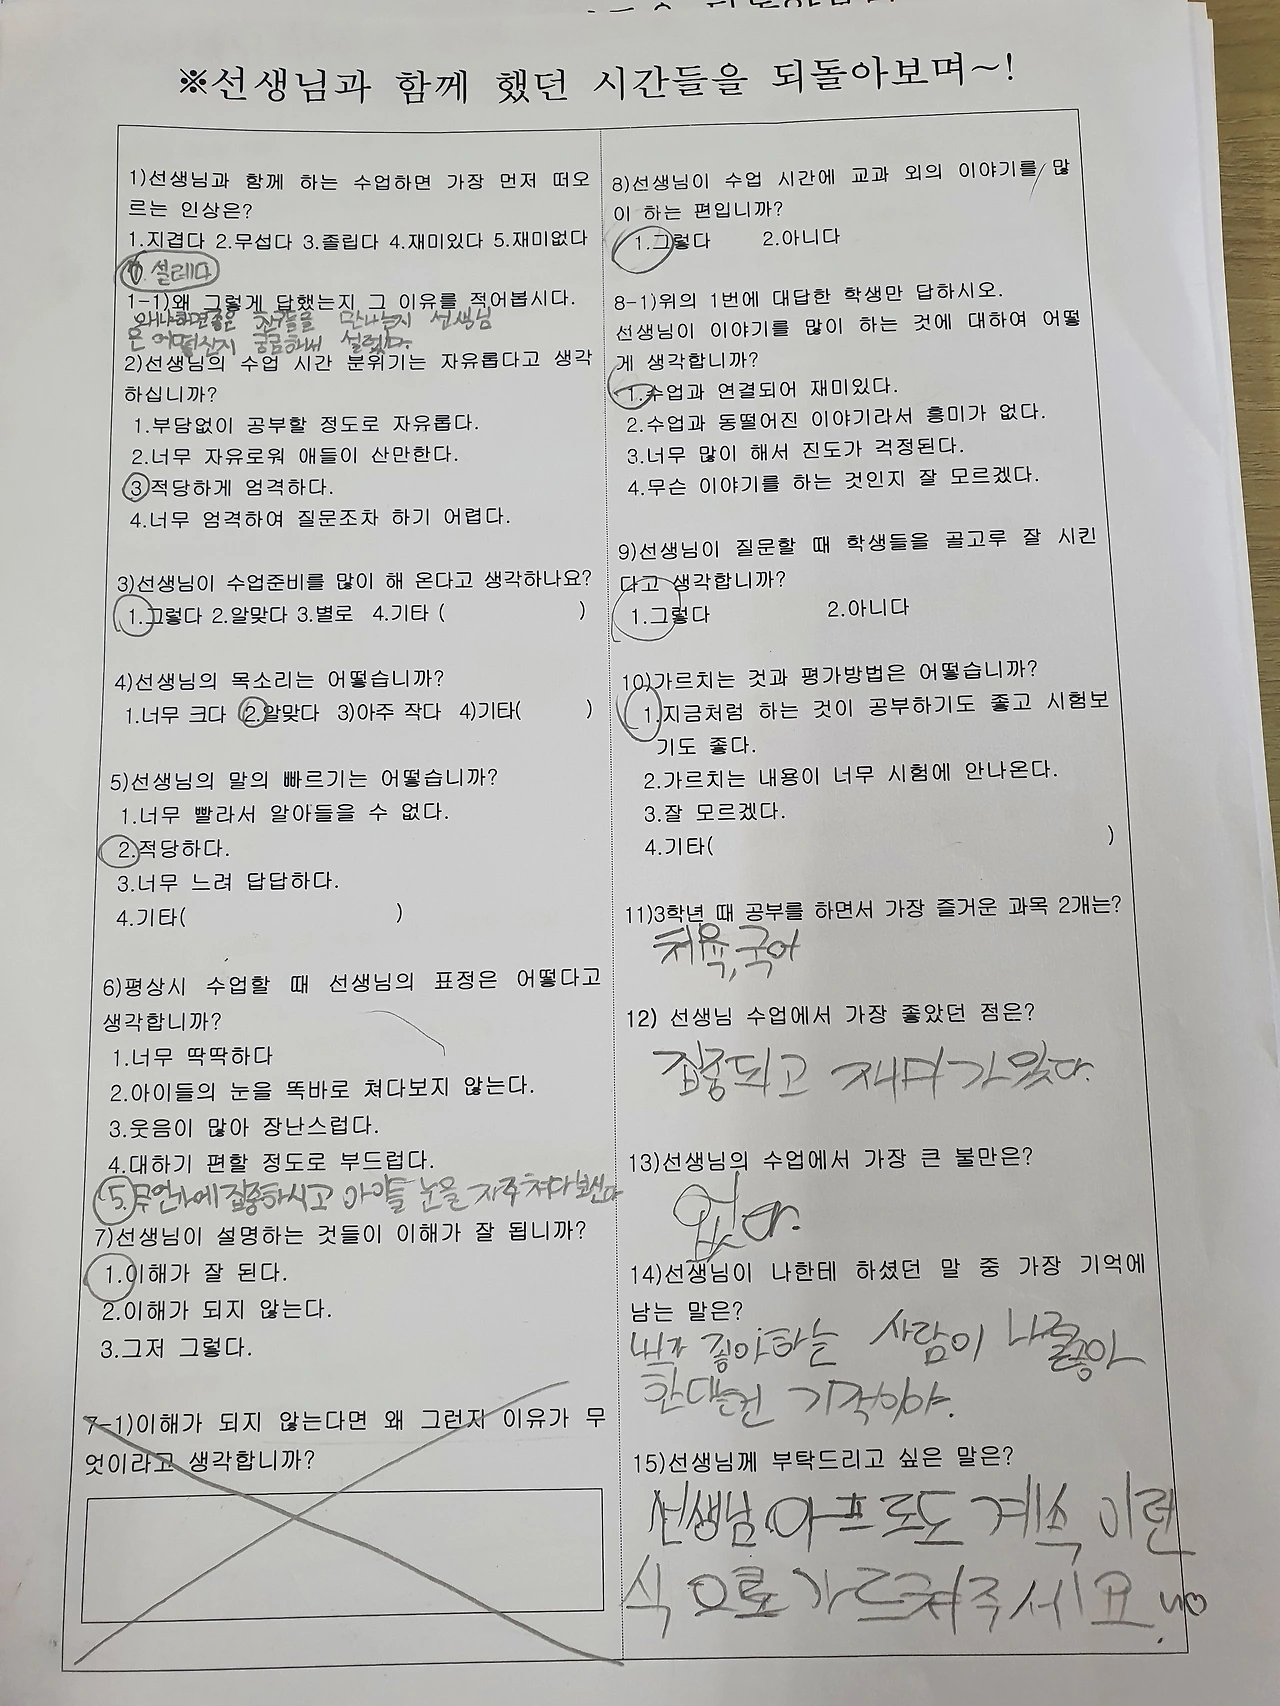 ※선생님과 함께 했던 시간들을 되돌아보며~!
1)선생님과 함께 하는 수업하면 가장 먼저 떠오
르는 인상은?
1.지겹다 2.무섭다 3.졸립다 4.재미있다 5.재미없다
6. 설레다
1-1)왜 그렇게 답했는지 그 이유를 적어봅시다.
왜냐하면좋은 친구들을 만나는지 선생님
은 어떠실지 궁금해서 설렜다.
2)선생님의 수업 시간 분위기는 자유롭다고 생각
하십니까?
1.부담없이 공부할 정도로 자유롭다.
2.너무 자유로워 애들이 산만한다.
3적당하게 엄격하다.
4.너무 엄격하여 질문조차 하기 어렵다.
3)선생님이 수업준비를 많이 해 온다고 생각하나요?
1.그렇다 2.알맞다 3.별로 4.기타 ( )
4)선생님의 목소리는 어떻습니까?
1.너무 크다 2.알맞다 3)아주 작다 4)기타( )
5)선생님의 말의 빠르기는 어떻습니까?
1.너무 빨라서 알아들을 수 없다.
2.적당하다.
3.너무 느려 답답하다.
4.기타( )
6)평상시 수업할 때 선생님의 표정은 어떻다고
생각합니까?
1.너무 딱딱하다
2.아이들의 눈을 똑바로 쳐다보지 않는다.
3.웃음이 많아 장난스럽다.
4.대하기 편할 정도로 부드럽다.
5.무언가에 집중하시고 아이들 눈을 자주 쳐다보신다
7)선생님이 설명하는 것들이 이해가 잘 됩니까?
1.이해가 잘 된다.
2.이해가 되지 않는다.
3.그저 그렇다.
7-1)이해가 되지 않는다면 왜 그런지 이유가 무
엇이라고 생각합니까?
8)선생님이 수업 시간에 교과 외의 이야기를 많
이 하는 편입니까?
1.그렇다 2.아니다
8-1)위의 1번에 대답한 학생만 답하시오.
선생님이 이야기를 많이 하는 것에 대하여 어떻
게 생각합니까?
1.수업과 연결되어 재미있다.
2.수업과 동떨어진 이야기라서 흥미가 없다.
3.너무 많이 해서 진도가 걱정된다.
4.무슨 이야기를 하는 것인지 잘 모르겠다.
9)선생님이 질문할 때 학생들을 골고루 잘 시킨
다고 생각합니까?
1.그렇다 2.아니다
10)가르치는 것과 평가방법은 어떻습니까?
1.지금처럼 하는 것이 공부하기도 좋고 시험보
기도 좋다.
2.가르치는 내용이 너무 시험에 안나온다.
3.잘 모르겠다.
4.기타( )
11)3학년 때 공부를 하면서 가장 즐거운 과목 2개는?
체육,국어
12) 선생님 수업에서 가장 좋았던 점은?
집중되고 재미가있다.
13)선생님의 수업에서 가장 큰 불만은?
없다.
14)선생님이 나한테 하셨던 말 중 가장 기억에
남는 말은?
내가 좋아하는 사람이 나를좋아
한다는건 기적이야.
15)선생님께 부탁드리고 싶은 말은?
선생님 아프로도 계속 이런
식으로 가르쳐주세요.